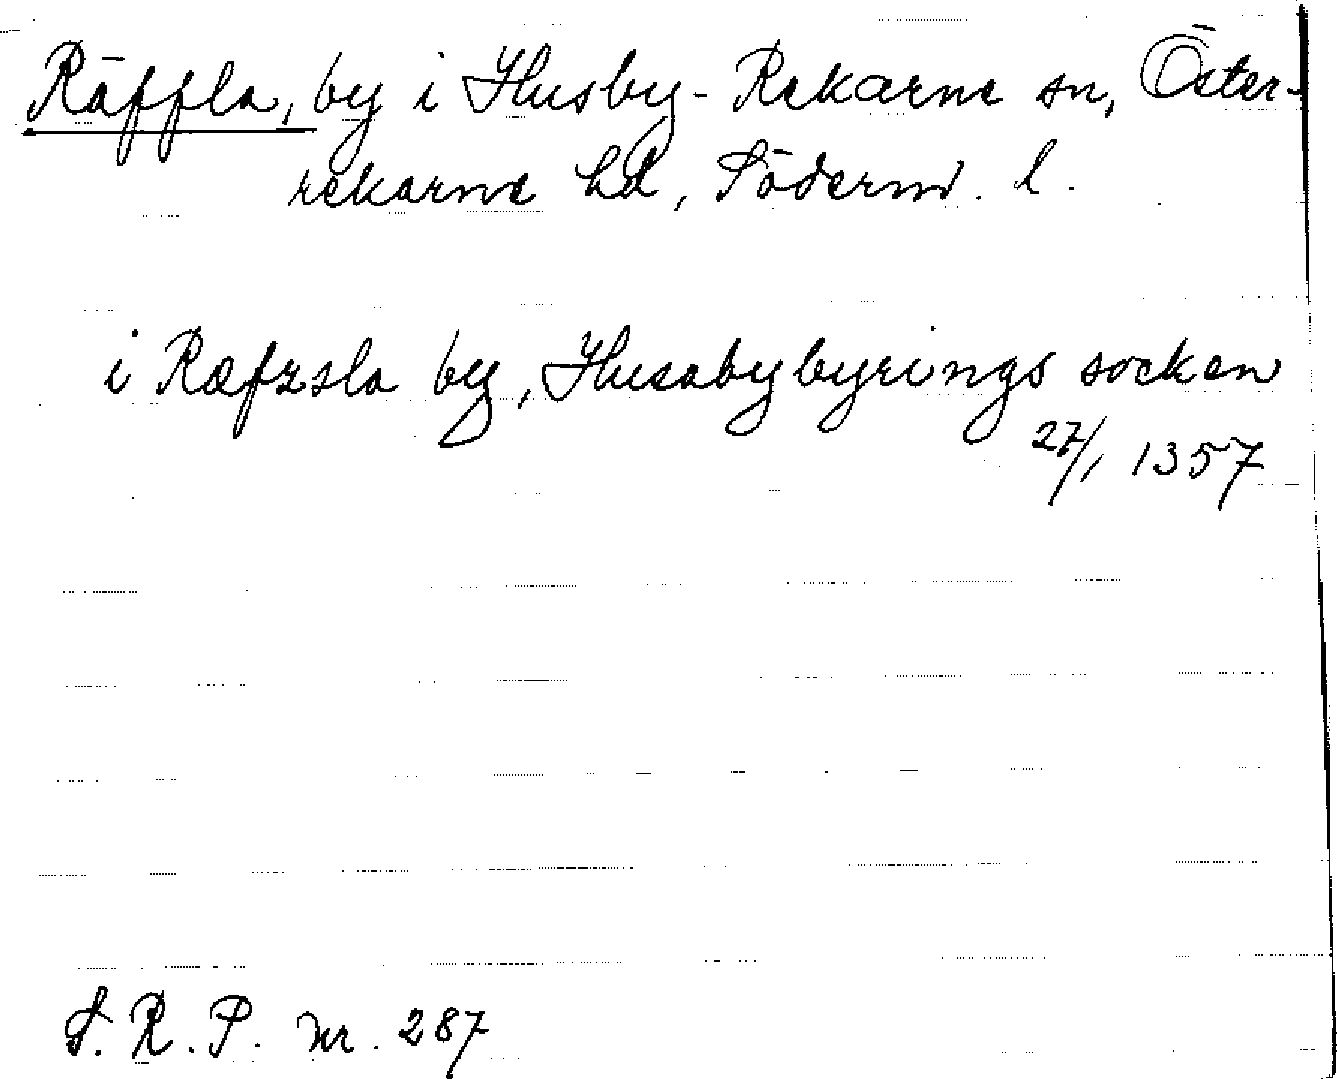 Räffla, by i Husby-Rekarne sn, Öster-
rekarne hd, Söderm. l.
i Ræfzsla by, Husabybyrings socken
27/1 1357
S.R.P. nr. 287